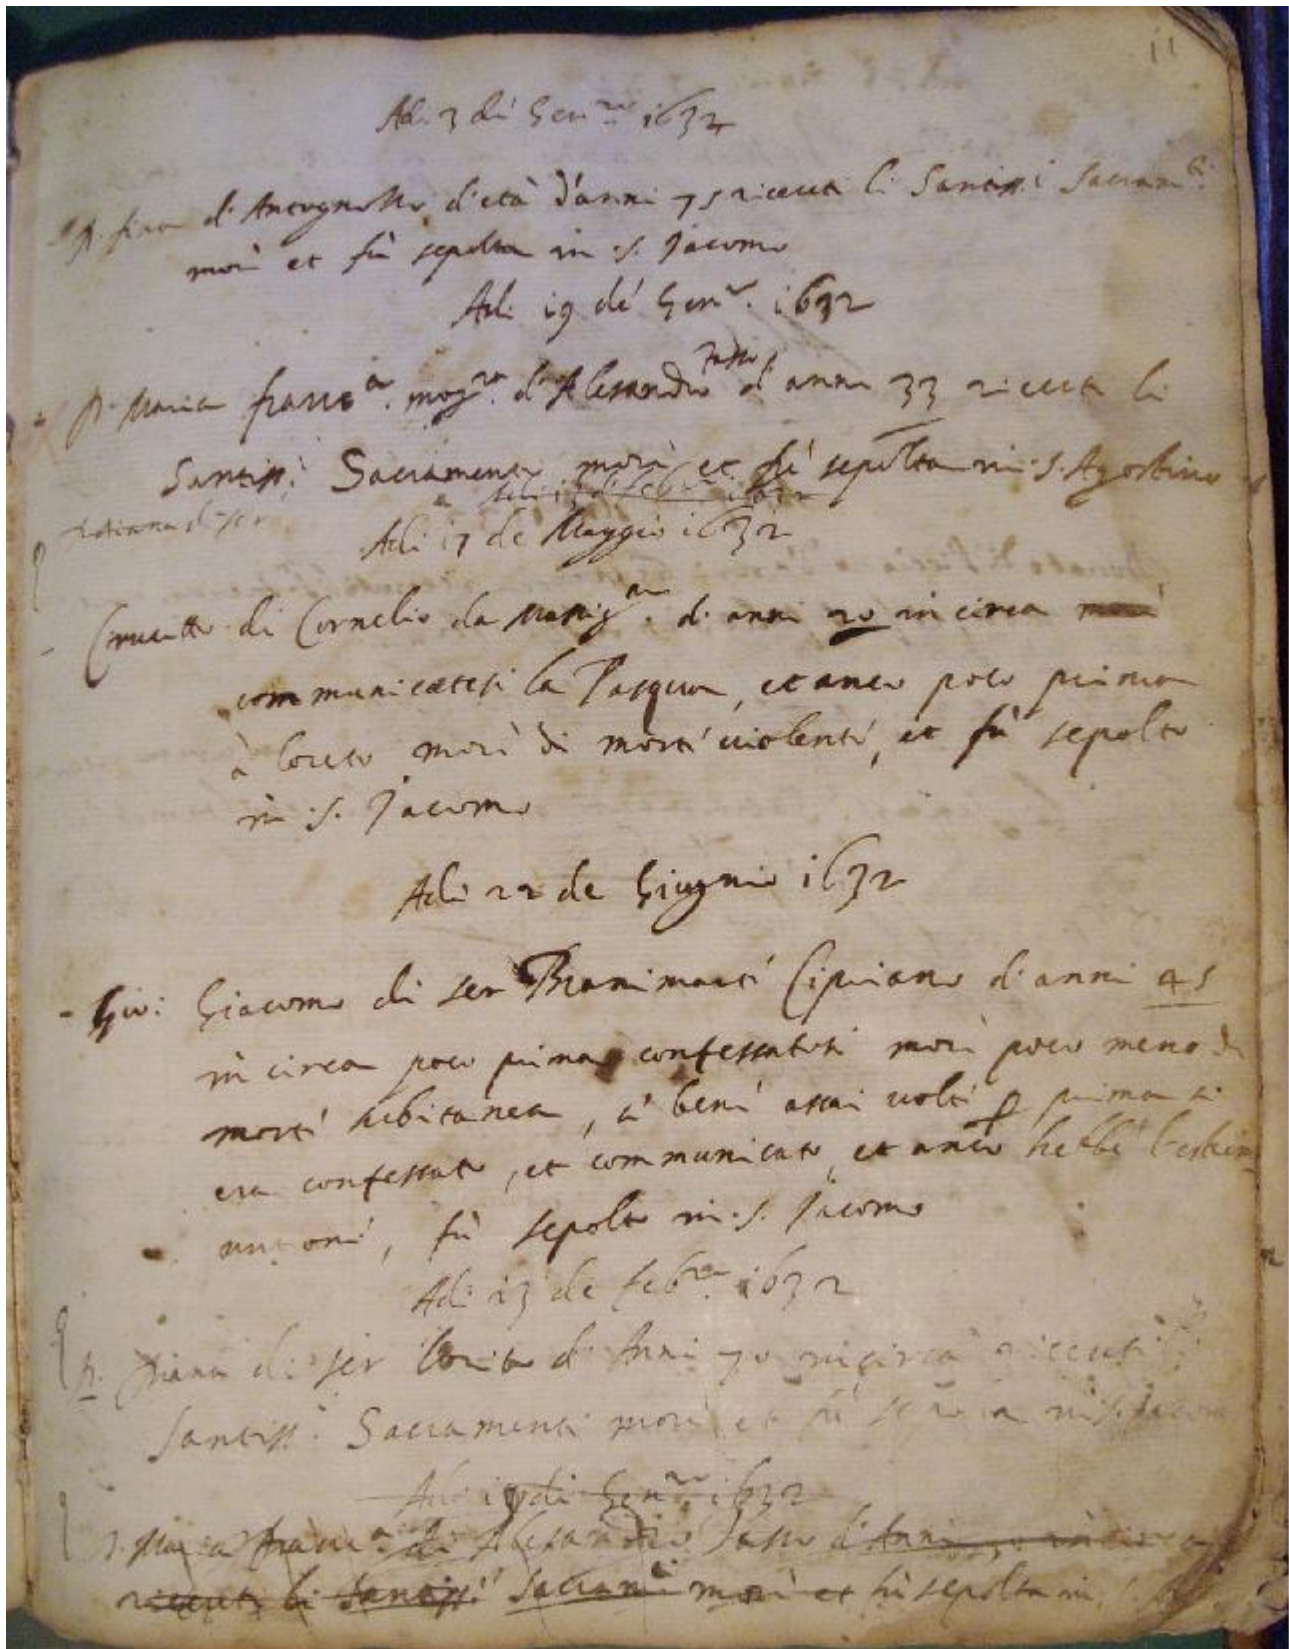 11
Adi 3 di Gen.ro 1632
d'età d'anni 75 riceuti li Santiss.i Sacram.ti
morì et fù sepolta in S. Jacomo
Adi 19 dé Gen.ro 1632
D. Maria franc.a mog.ra d'Alesandro Tasso d'anni 33 riceuti li
Santiss.i Sacramenti morì et fù sepolta in S. Agostino
Adi 13 di Feb.ro 1632
di ser
Adi 17 de Maggio 1632
di Cornelio da d'anni 20 in circa morì
communicatosi la Pasqua, et anco poco prima
à loreto morì di morte violente, et fù sepolto
in S. Jacomo
Adi 22 de Giugnio 1632
Gio: Giacomo di ser Cipriano d'anni 45
in circa poco prima confessatosi morì poco meno di
morte subitanea, si bene assai volte prima si
era confessato, et communicato, et anco hebbe l'estrema
untione, fù sepolto in S. Jacomo
Adi 13 de feb.ro 1632
D. di ser d'Anni 70 in circa riceuti li
Santiss.i Sacramenti morì et fù sepolta in S. Jacomo
Adi 19 di Gen.ro 1632
D. Maria franc.a di Alesandro Tasso d'Anni in circa
riceuti li Santiss.i Sacram.ti morì et fù sepolta in S.